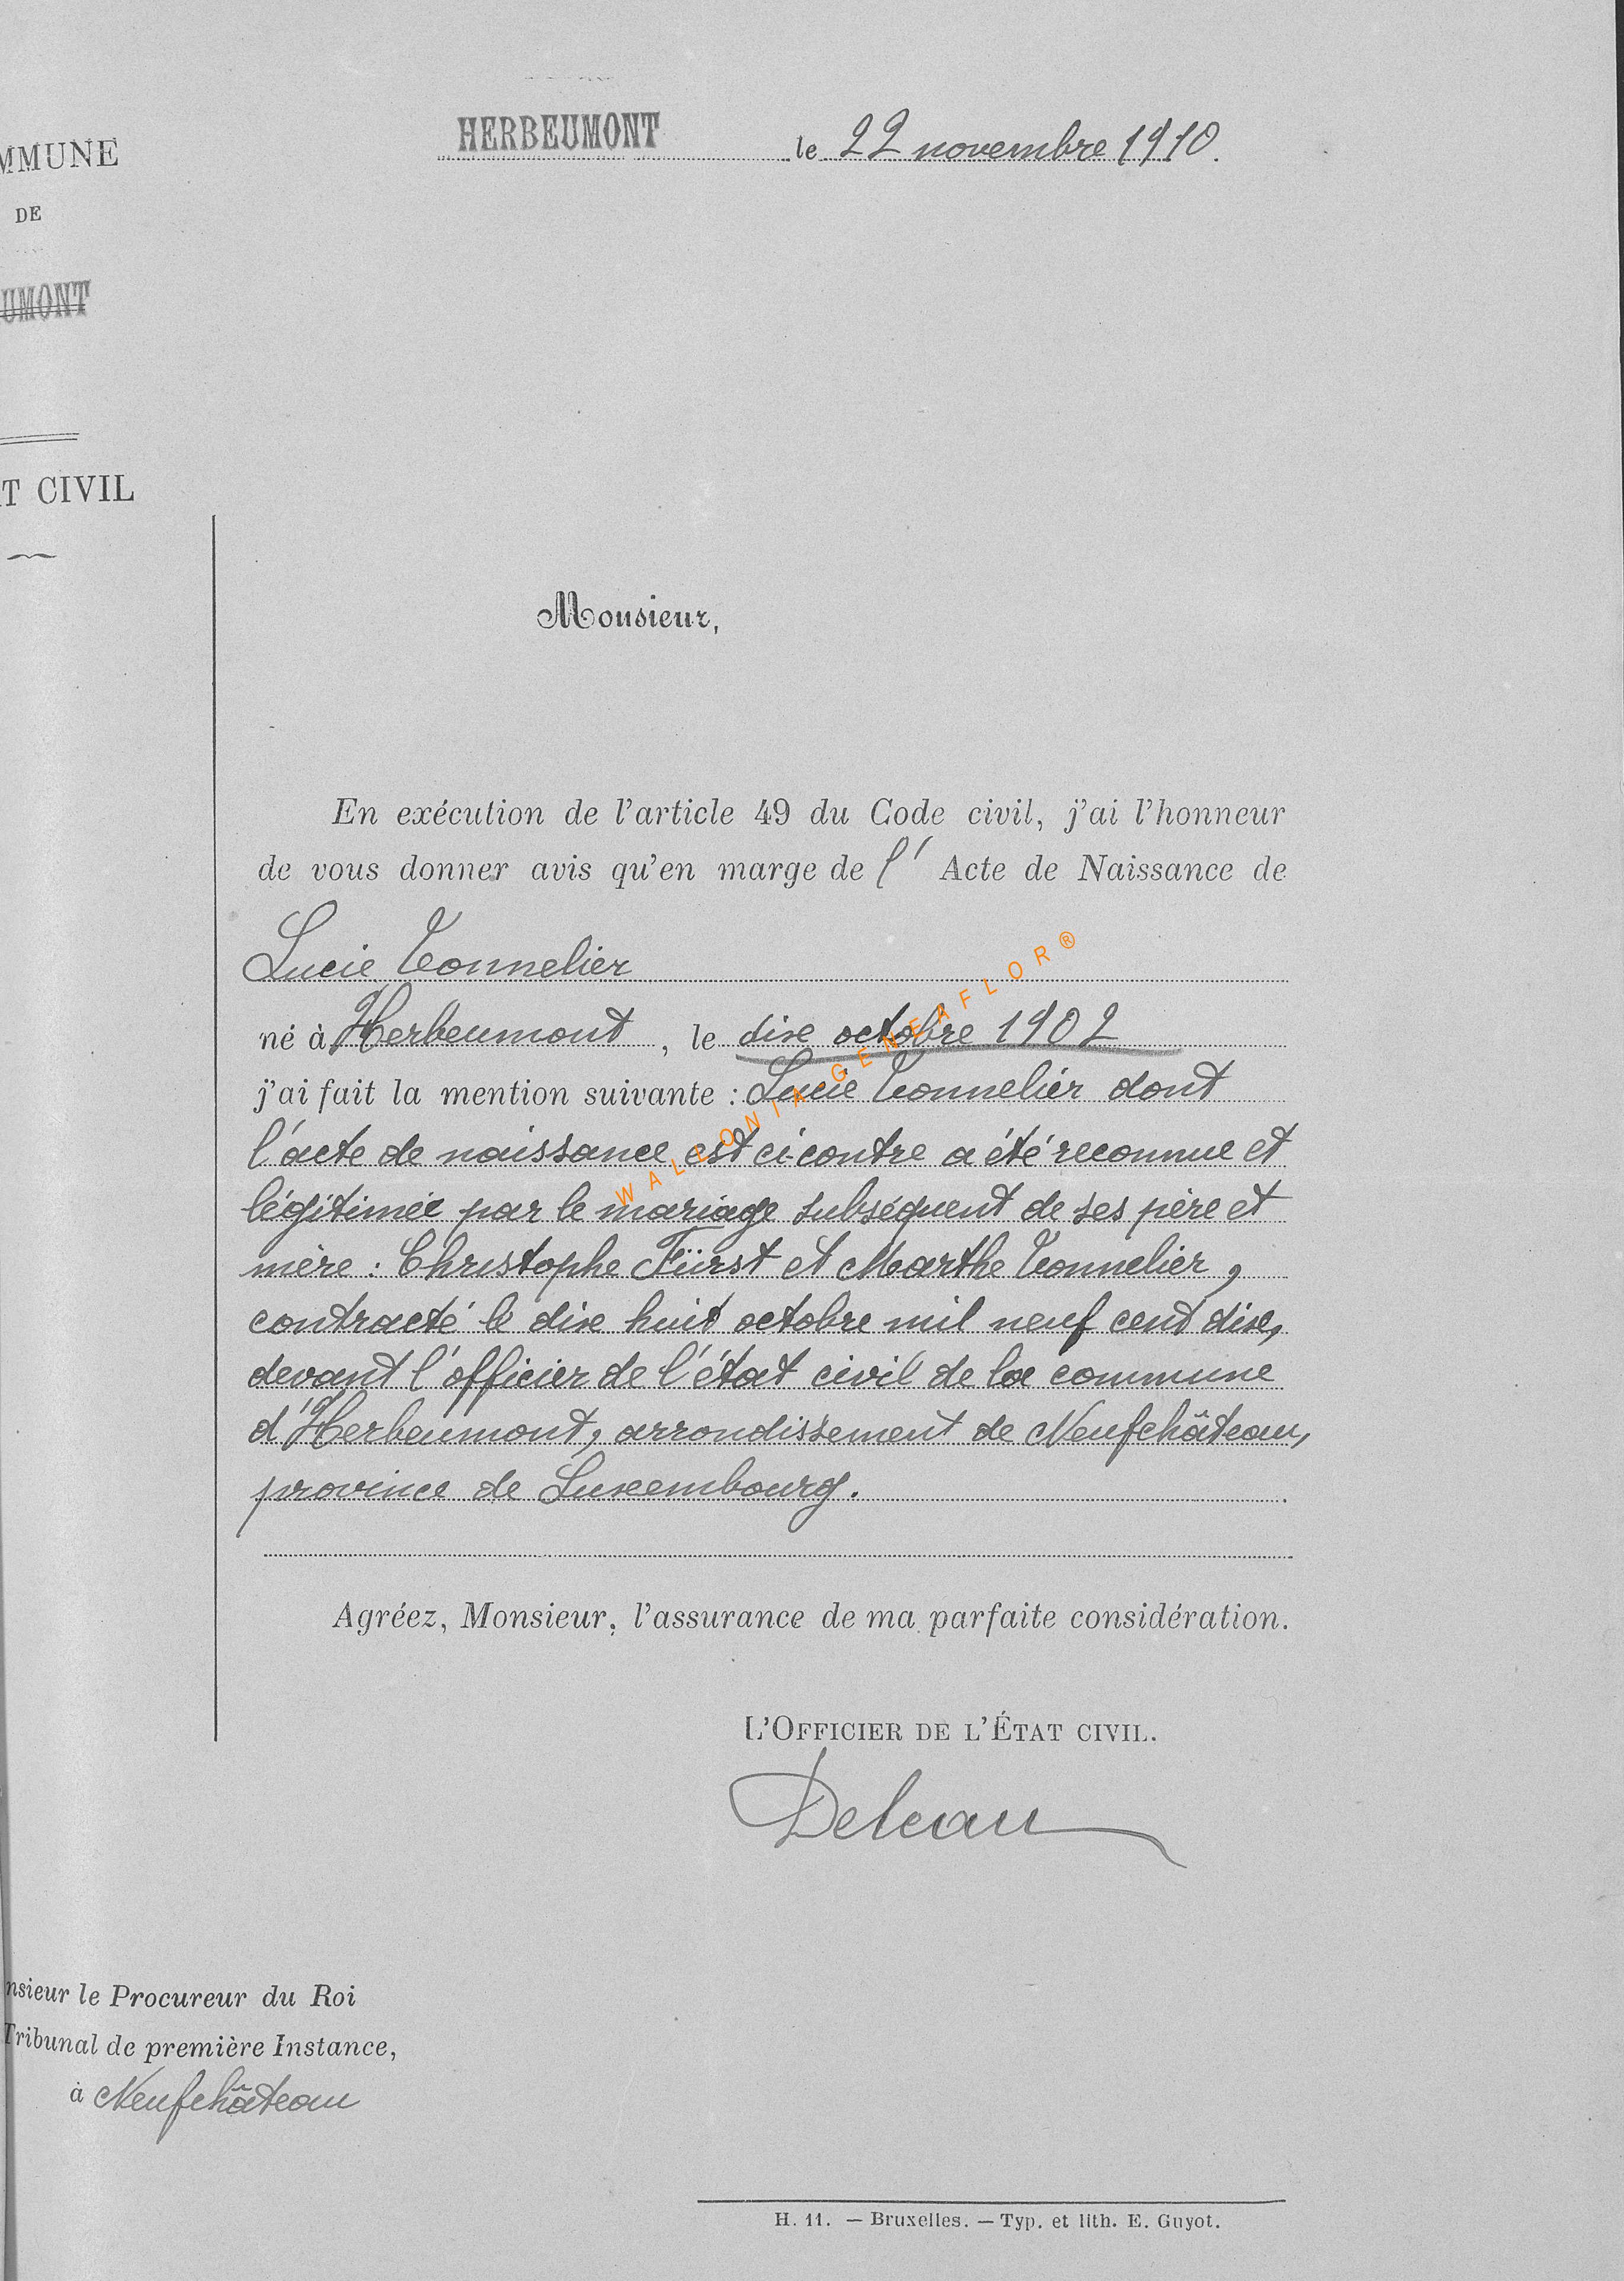 HERBEUMONT le 22 novembre 1910.
MMUNE
DE
UMONT
T CIVIL
Monsieur,
En exécution de l'article 49 du Code civil, j'ai l'honneur
de vous donner avis qu'en marge de l' Acte de Naissance de
Lucie Tonnelier
né à Herbeumont, le dix octobre 1902
j'ai fait la mention suivante : Lucie Tonnelier dont
l'acte de naissance est ci-contre a été reconnue et
légitimée par le mariage subséquent de ses père et
mère : Christophe Fürst et Marthe Tonnelier,
contracté le dix huit octobre mil neuf cent dix,
devant l'officier de l'état civil de la commune
d'Herbeumont, arrondissement de Neufchâteau,
province de Luxembourg.
WALLONIA-GENEAFLOR®
Agréez, Monsieur, l'assurance de ma parfaite considération.
L'OFFICIER DE L'ÉTAT CIVIL.
Deleau
nsieur le Procureur du Roi
Tribunal de première Instance,
à Neufchâteau
H. 11. — Bruxelles. — Typ. et lith. E. Guyot.